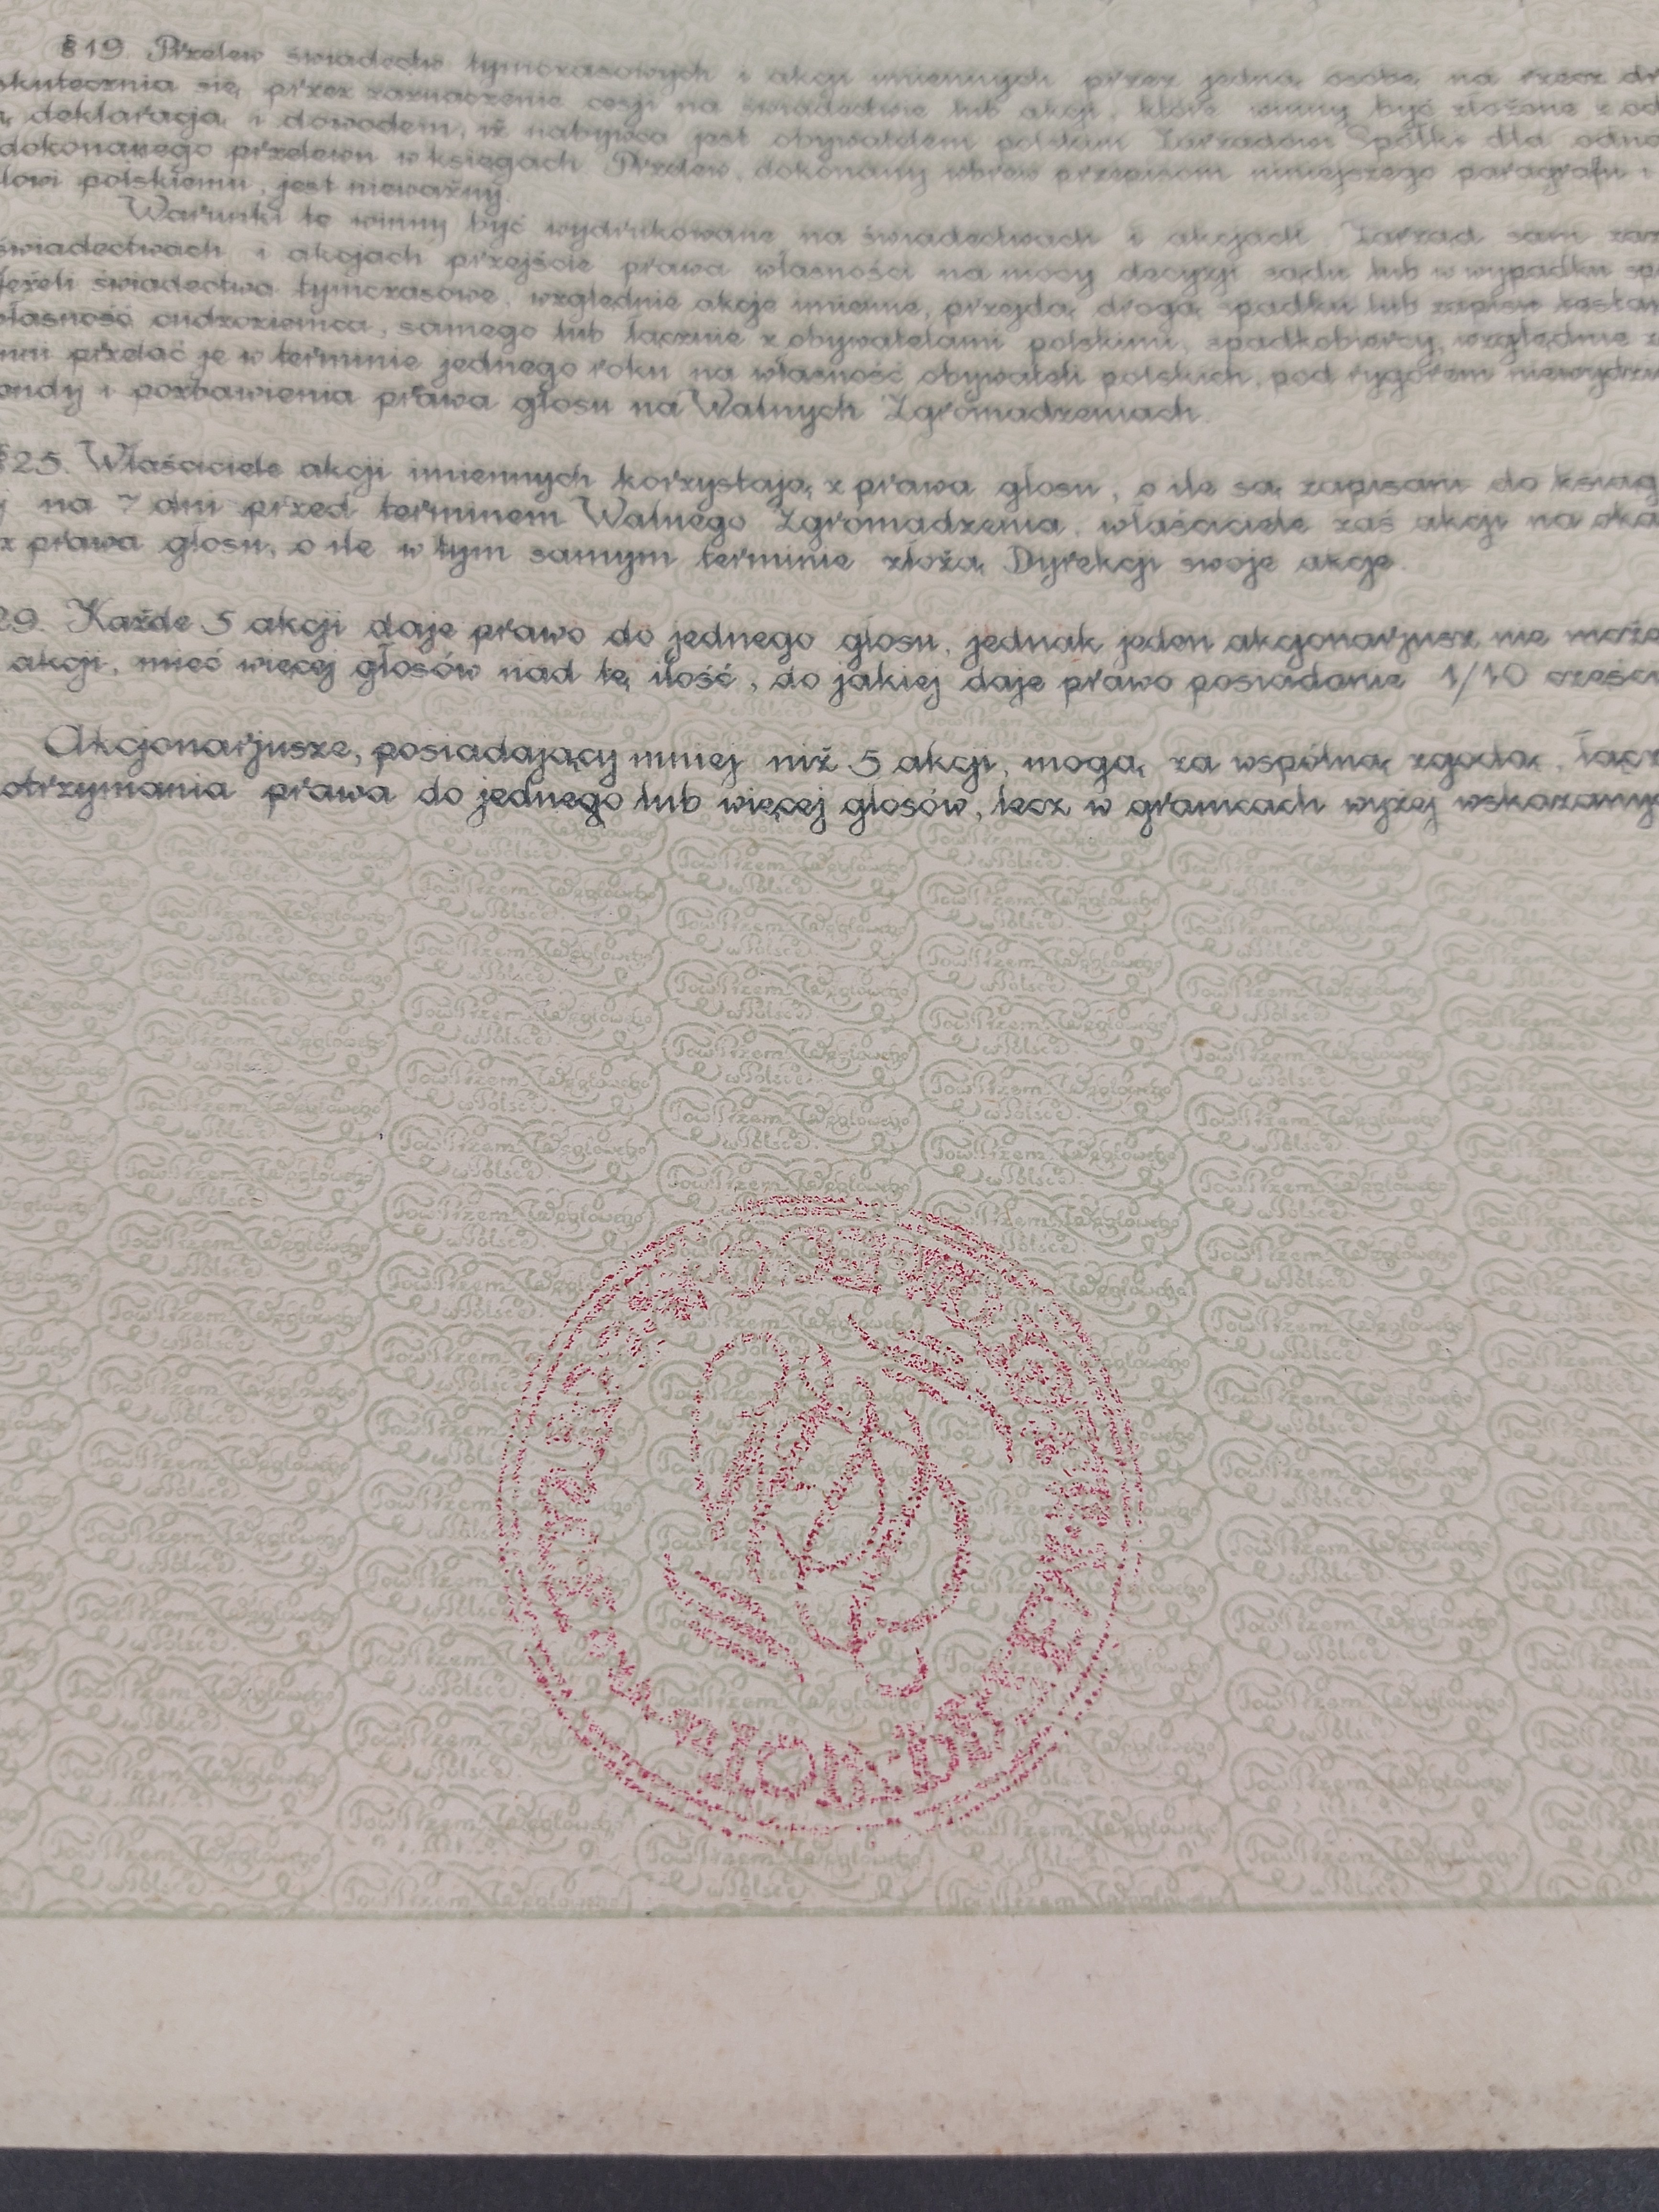 §19. Przelew świadectw tymczasowych i akcji imiennych przez jedną osobę na rzecz
skutecznia się przez zaznaczenie cesji na świadectwie lub akcji, które winny być złożone z
deklaracją i dowodem, iż nabywca jest obywatelem polskim Zarządowi Spółki dla
dokonanego przelewu w księgach. Przelew, dokonany wbrew przepisom niniejszego paragrafu i
polskiemu, jest nieważny.
Warunki te winny być wydrukowane na świadectwach i akcjach. Zarząd sam
świadectwach i akcjach przejście prawa własności na mocy decyzji sądu lub w wypadku
Jeżeli świadectwa tymczasowe, względnie akcje imienne, przejdą drogą spadku lub zapisu
własność cudzoziemca, samego lub łącznie z obywatelami polskimi, spadkobiercy, względnie
przelać je w terminie jednego roku na własność obywateli polskich, pod rygorem
i pozbawienia prawa głosu na Walnych Zgromadzeniach.
§25. Właściciele akcji imiennych korzystają z prawa głosu, o ile są zapisani do ksiąg
na 7 dni przed terminem Walnego Zgromadzenia, właściciele zaś akcji na
z prawa głosu, o ile w tym samym terminie złożą Dyrekcji swoje akcje.
29. Każde 5 akcji daje prawo do jednego głosu, jednak jeden akcjonarjusz nie może
akcji, mieć więcej głosów nad tę ilość, do jakiej daje prawo posiadanie 1/10 części
Akcjonarjusze, posiadający mniej niż 5 akcji, mogą, za wspólną zgodą,
otrzymania prawa do jednego lub więcej głosów, lecz w granicach wyżej
Tow. Przem. Węglowego
w Polsce